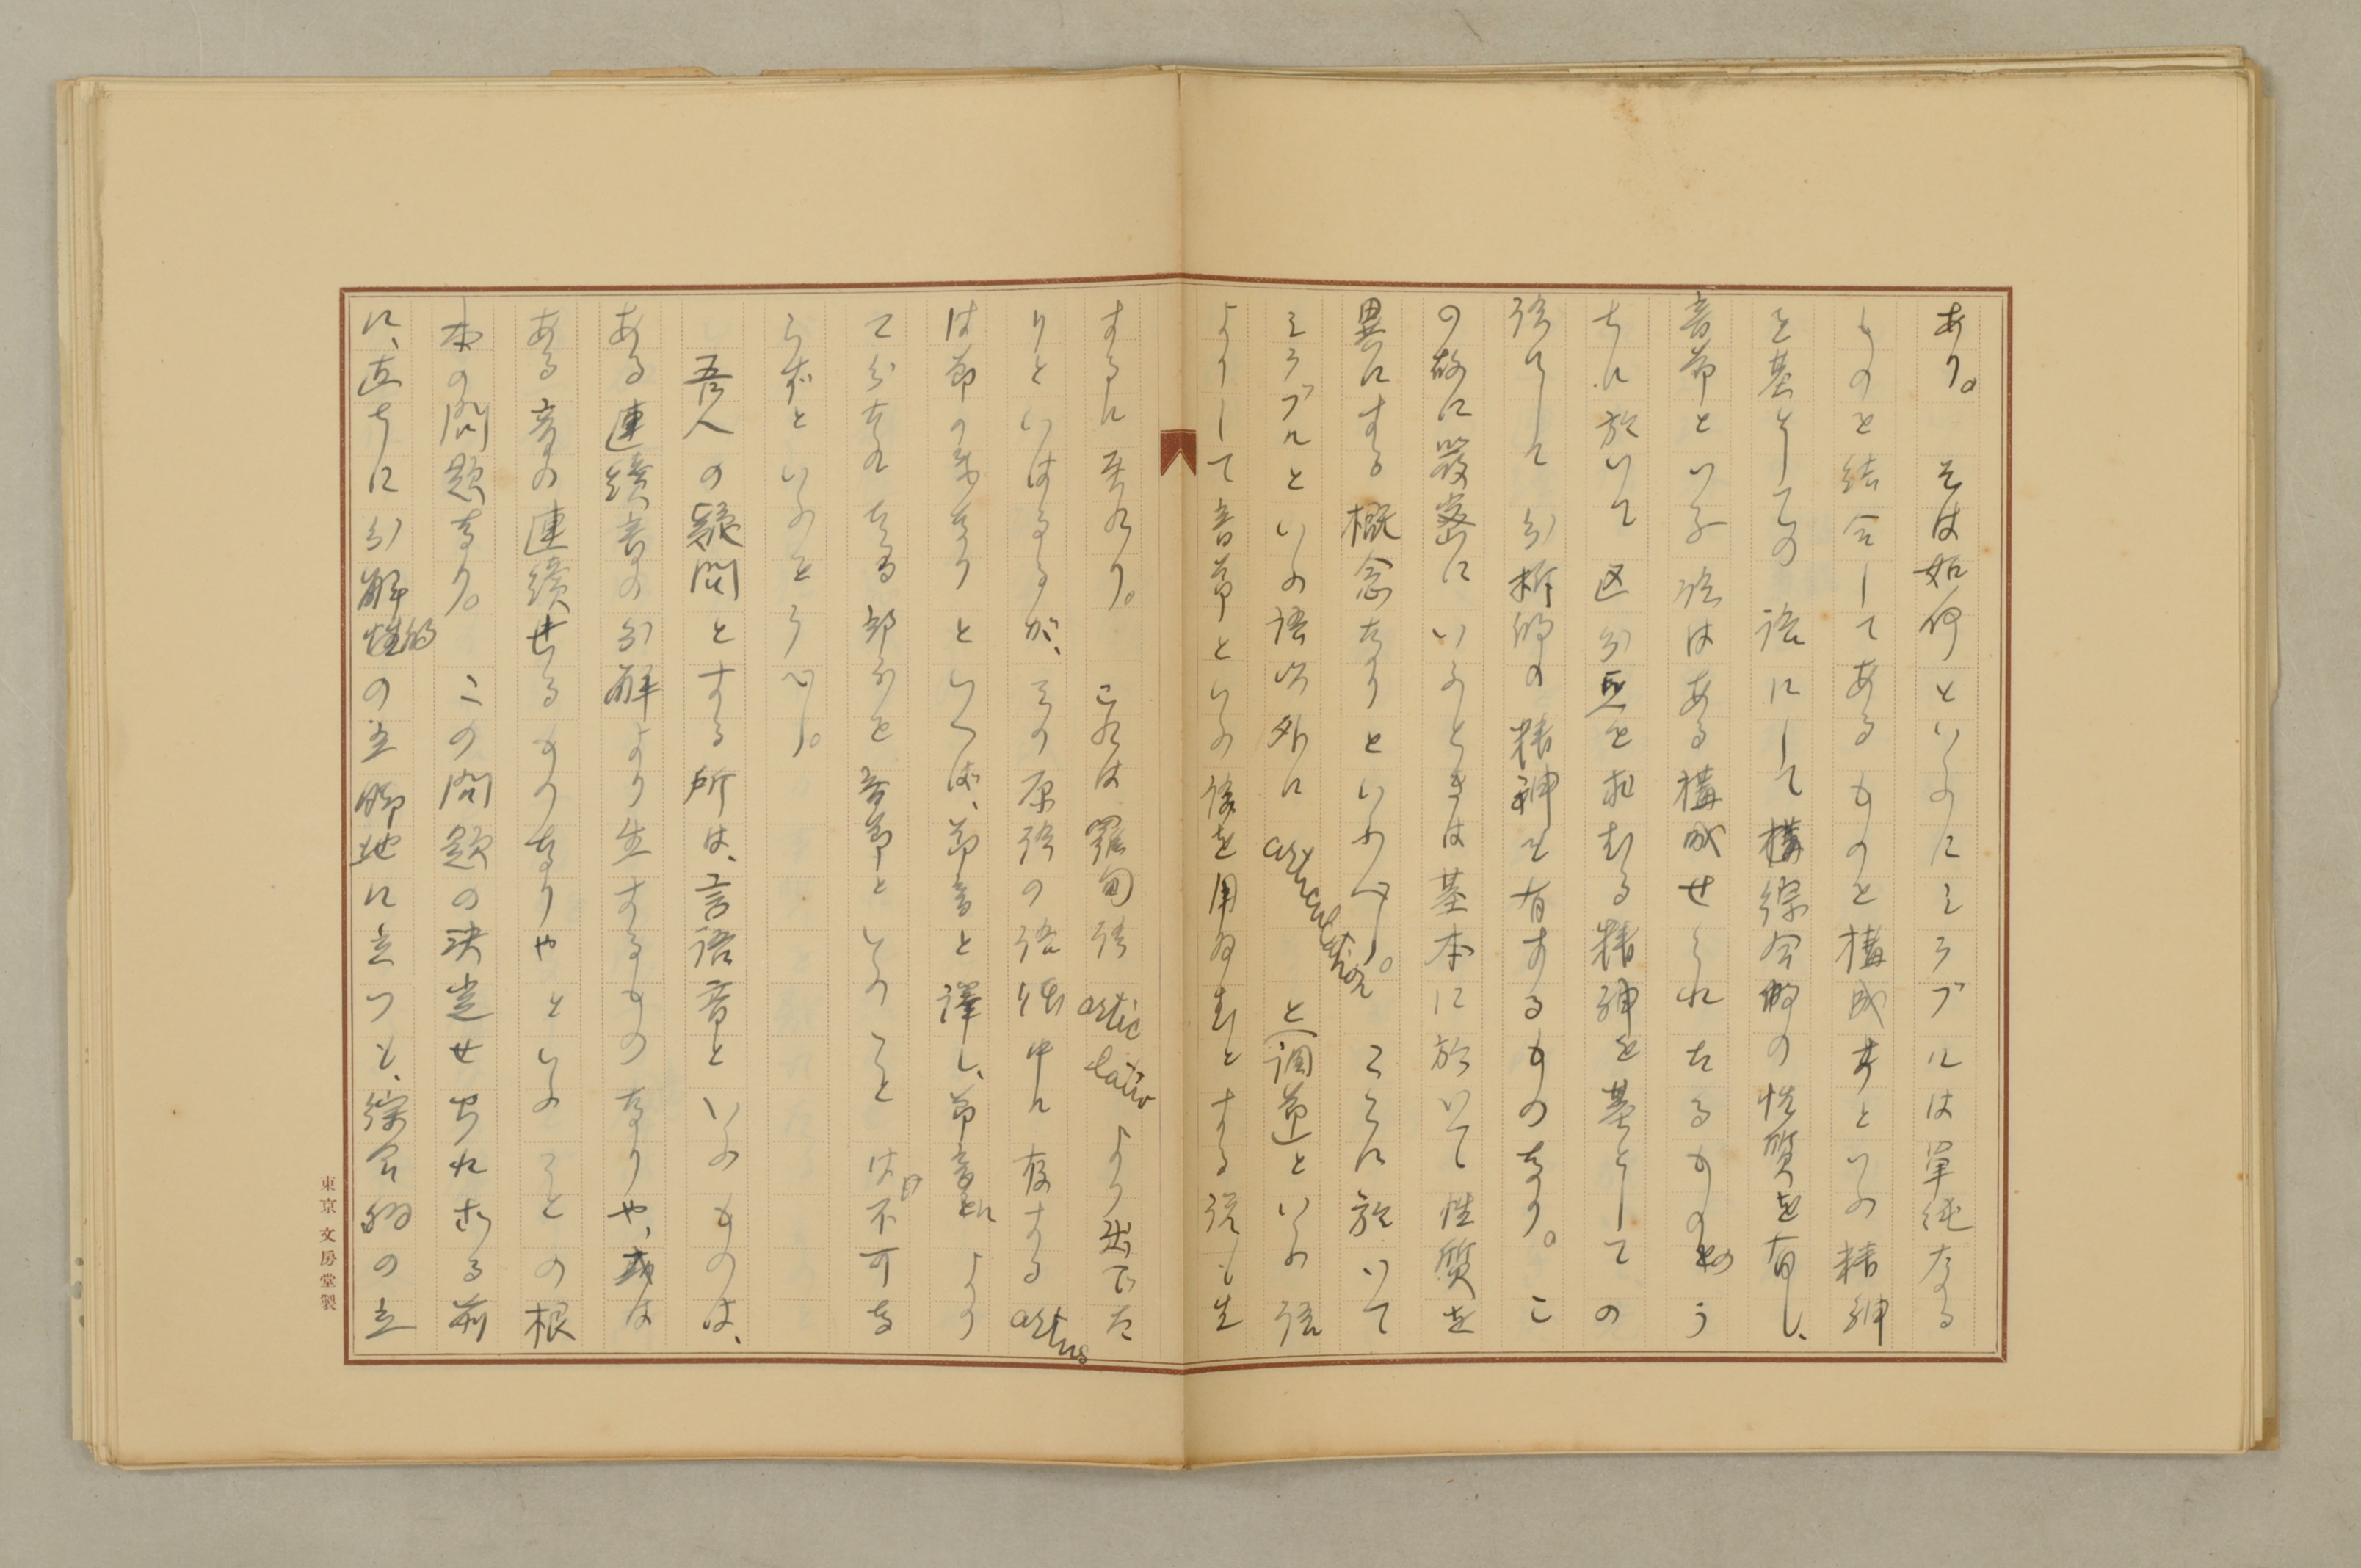 あり。そは如何といふにシラブルは単純なる
ものを結合してあるものを構成すといふ精神
を基としての語にして構綜合的の性質を有し、
音節といふ語はある構成せられたるもののう
ちに於いて区分点を求むる精神を基としての
語にして分析的の精神を有するものなり。こ
の故に厳密にいふときは基本に於いて性質を
異にする概念なりといふべし。ここに於いて
シラブルといふ語以外に articulation と(調節)といふ語
よりして音節といふ語を用ゐむとする説も生
ずるに至れり。これは羅甸語 articulatio より出でた
りといはるるが、その原語の語中に存する artus
は節の義なりといへば、節音と譯し、節音により
て分たれたる部分を音節といふことは不可な
らずといふを得べし。
吾人の疑問とする所は、言語音といふものは、
ある連續音の分解より生するものなりや、或は
ある音の連續せるものなりやといふことの根
本の問題なり。この問題の決定せられざる前
に、直ちに分解性的の立脚地に立つも、綜合的の立
東京 文房堂製